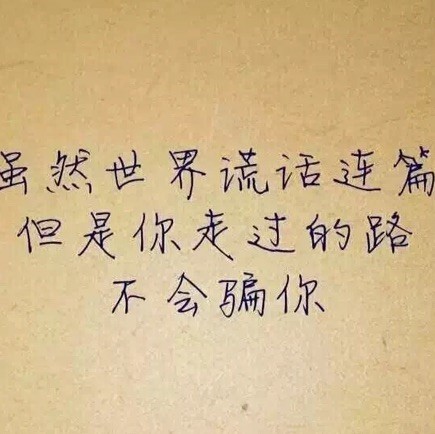 虽然世界谎话连篇
但是你走过的路
不会骗你